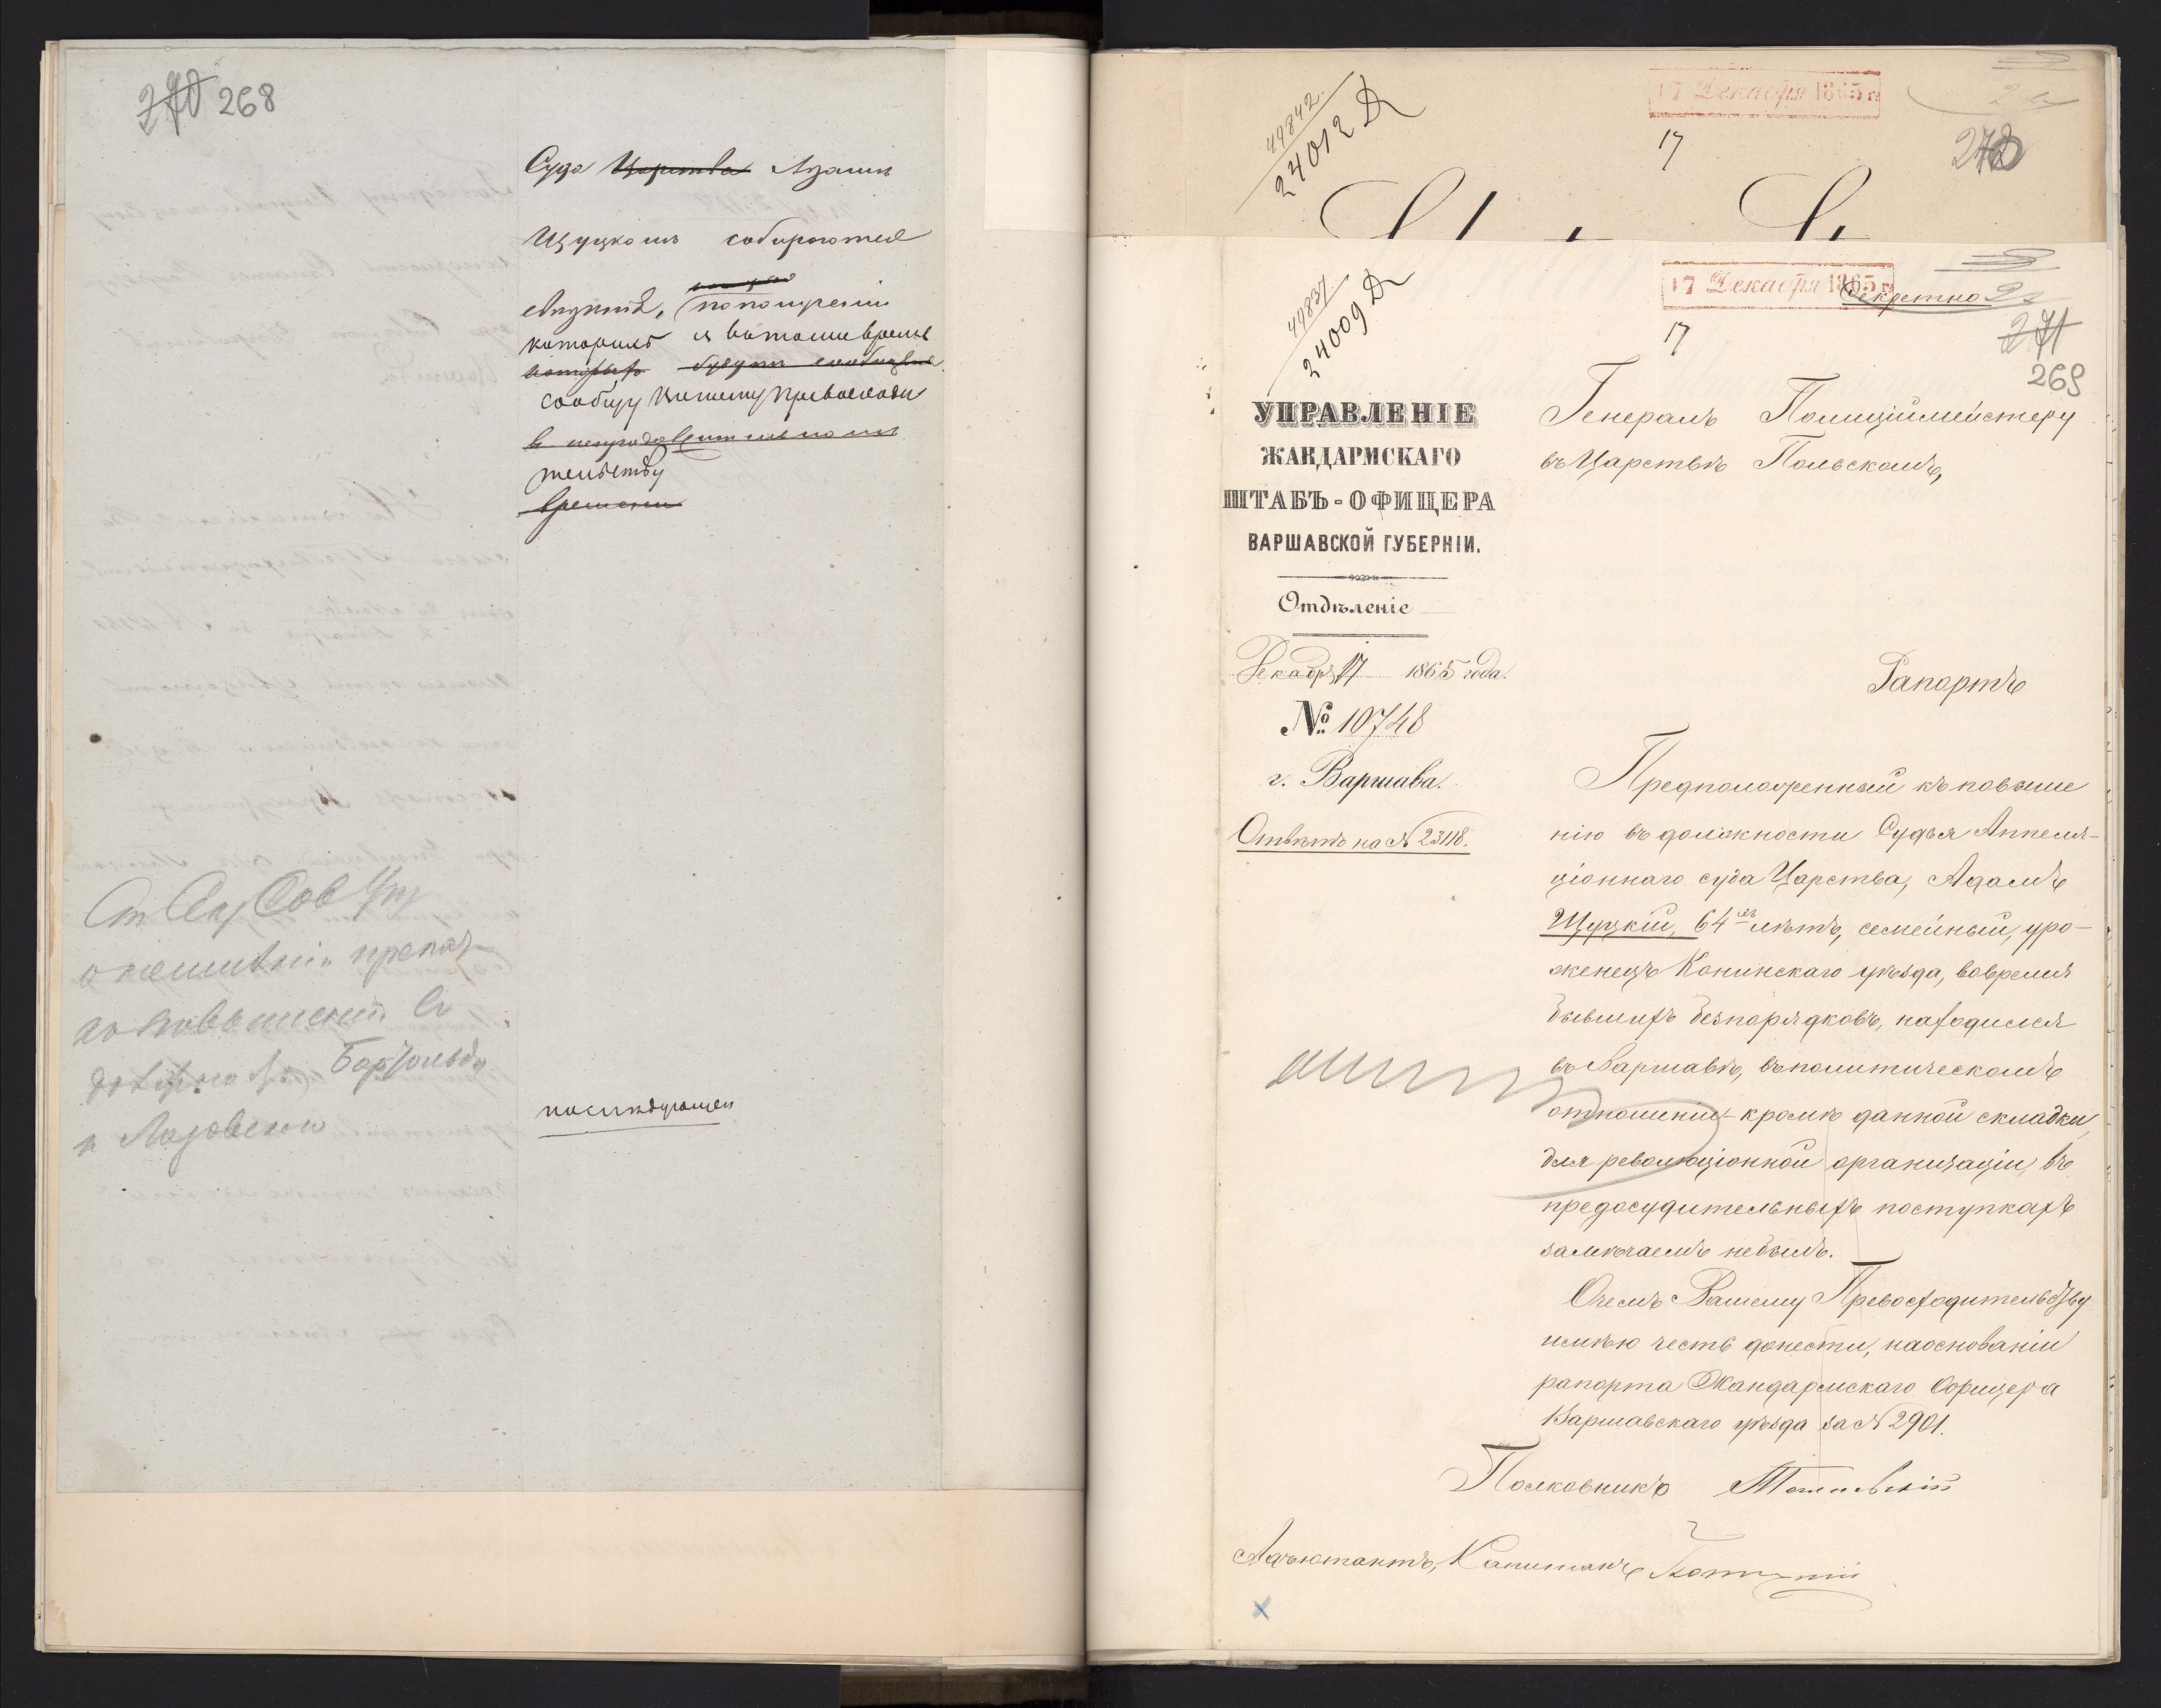 270 268
Суда Царства Адамъ
Щуцкомъ собираются
свѣдѣнія, по полученіи
которыхъ я въ тоже время
которыя будутъ сообщены
сообщу Вашему Превосходи
въ непродолжительномъ
тельству
времени
до повышенію въ
Бартольда
и Лазовскаго
послѣдующемъ
49842
24012
17 Декабря 1865 г.
17
270
49837
24009
17 Декабря 1865 г.
Секретно
17
271
269
УПРАВЛЕНІЕ
ЖАНДАРМСКАГО
ШТАБЪ-ОФИЦЕРА
ВАРШАВСКОЙ ГУБЕРНІИ.
Отдѣленіе
Декабря 17 1865 года.
№ 10748
г. Варшава.
Отвѣтъ на № 23118.
Генералъ Полиціймейстеру
въ Царствѣ Польскомъ,
Рапортъ
Предположенный къ повыше
нію въ должности Судья Аппеля-
ціоннаго суда Царства, Адамъ
Щуцкій, 64хъ лѣтъ, семейный, уро-
женецъ Конинскаго уѣзда, вовремя
бывшихъ безпорядковъ, находился
въ Варшавѣ, въ политическомъ
отношеніи кромѣ данной складки
для революціонной организаціи, въ
предосудительныхъ поступкахъ
замѣчаемъ небылъ.
Очемъ Вашему Превосходительству
имѣю честь донести, наоснованіи
рапорта Жандармскаго Офицера
Варшавскаго уѣзда за № 2901.
Полковникъ
Адъютантъ, Капитанъ